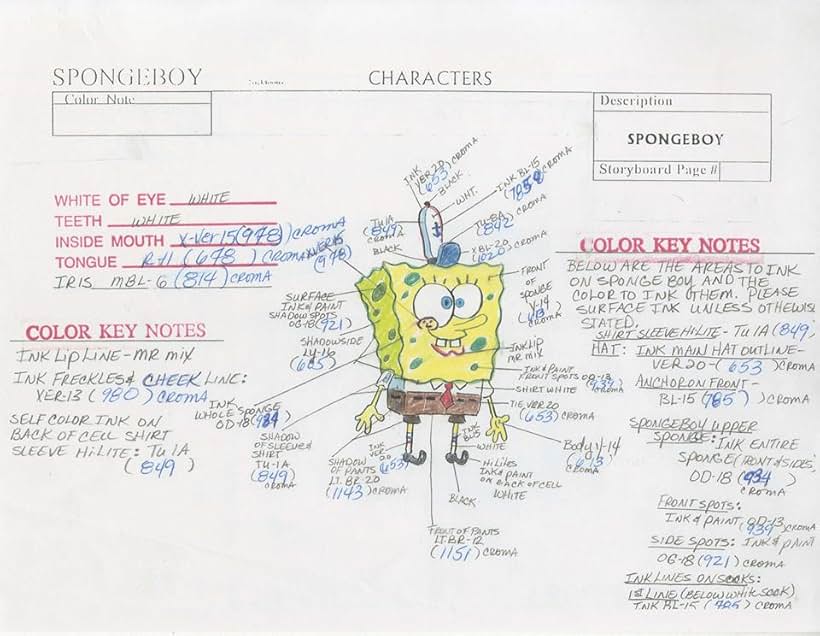 SPONGEBOY
CHARACTERS
Color Note
Description
SPONGEBOY
Storyboard Page #
WHITE OF EYE WHITE
TEETH WHITE
INSIDE MOUTH X-VER 15 (978) CROMA
TONGUE R-11 (678) CROMA
IRIS MBL-6 (814) CROMA
COLOR KEY NOTES
INK LIP LINE - MR MIX
INK FRECKLES & CHEEK LINE:
XER-13 (980) CROMA
SELF COLOR INK ON
BACK OF CELL SHIRT
SLEEVE HILITE: TU 1A
(849)
INK
VER 20
(653) CROMA
BLACK
WHT.
INK BL-15
CROMA
TU-8A
(842)
CROMA
XBL-20
(1020) CROMA
TU1A
(849)
CROMA
BLACK
XVER15
(978)
SURFACE
INK & PAINT
SHADOW SPOTS
OG-18 (921)
SHADOWSIDE
LY-16
(605)
INK
WHOLE SPONGE
OD-18 (934)
SHADOW
OF SLEEVE &
SHIRT
TU-1A
(849)
CROMA
INK
VER
20
(653)
SHADOW
OF PANTS
LT. BR-20
(1143) CROMA
FRONT
OF
SPONGE
Y-14
(613)
CROMA
INK LIP
MR MIX
INK & PAINT
FRONT SPOTS OD-13
(939) CROMA
SHIRT WHITE
TIE VER 20
(653) CROMA
INK
BL15
WHITE
BODY Y-14
(613)
CROMA
HI LITES
INK & PAINT
ON BACK OF CELL
WHITE
BLACK
FRONT OF PANTS
LT. BR-12
(1151) CROMA
COLOR KEY NOTES
BELOW ARE THE AREAS TO INK
ON SPONGE BOY AND THE
COLOR TO INK THEM. PLEASE
SURFACE INK UNLESS OTHEWISE
STATED.
SHIRT SLEEVE HILITE - TU 1A (849)
HAT: INK MAIN HAT OUTLINE -
VER 20 - (653) CROMA
ANCHOR ON FRONT -
BL-15 (785) CROMA
SPONGEBOY UPPER
SPONGE: INK ENTIRE
SPONGE (FRONT & SIDES)
OD-18 (934)
CROMA
FRONT SPOTS:
INK & PAINT, OD-13
(939) CROMA
SIDE SPOTS: INK & PAINT
OG-18 (921) CROMA
INK LINES ON SOCKS:
1st LINE (BELOW WHITE SOCK)
INK BL-15 (785) CROMA